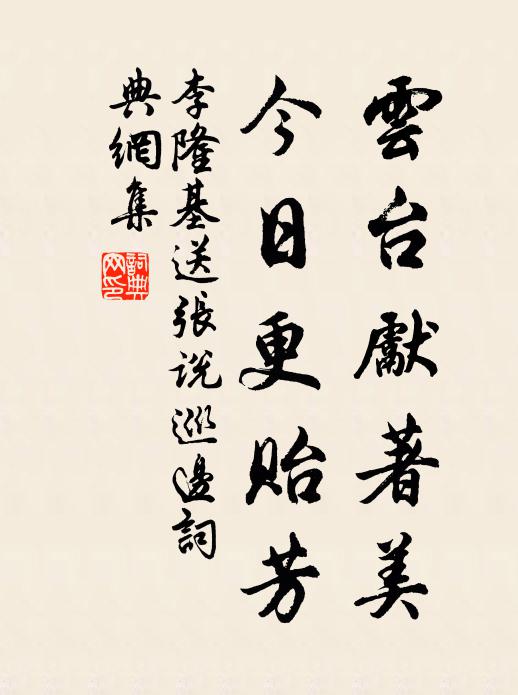 雲台獻著美
今日更貽芳
李隆基送張説巡邊詞
典網集
詞典網印